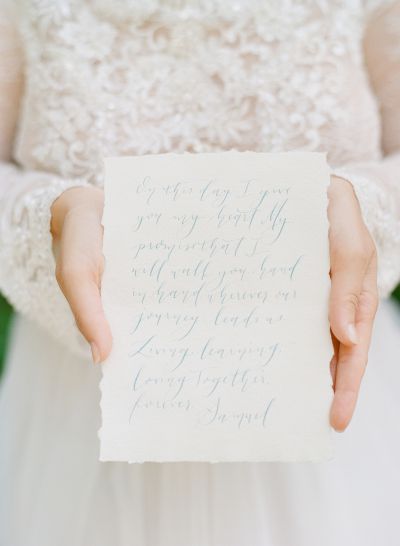 On this day, I give
you my heart My
promise that I
will walk you hand
in hand wherever our
journey leads us
Living, learning,
loving Together,
forever. Samuel